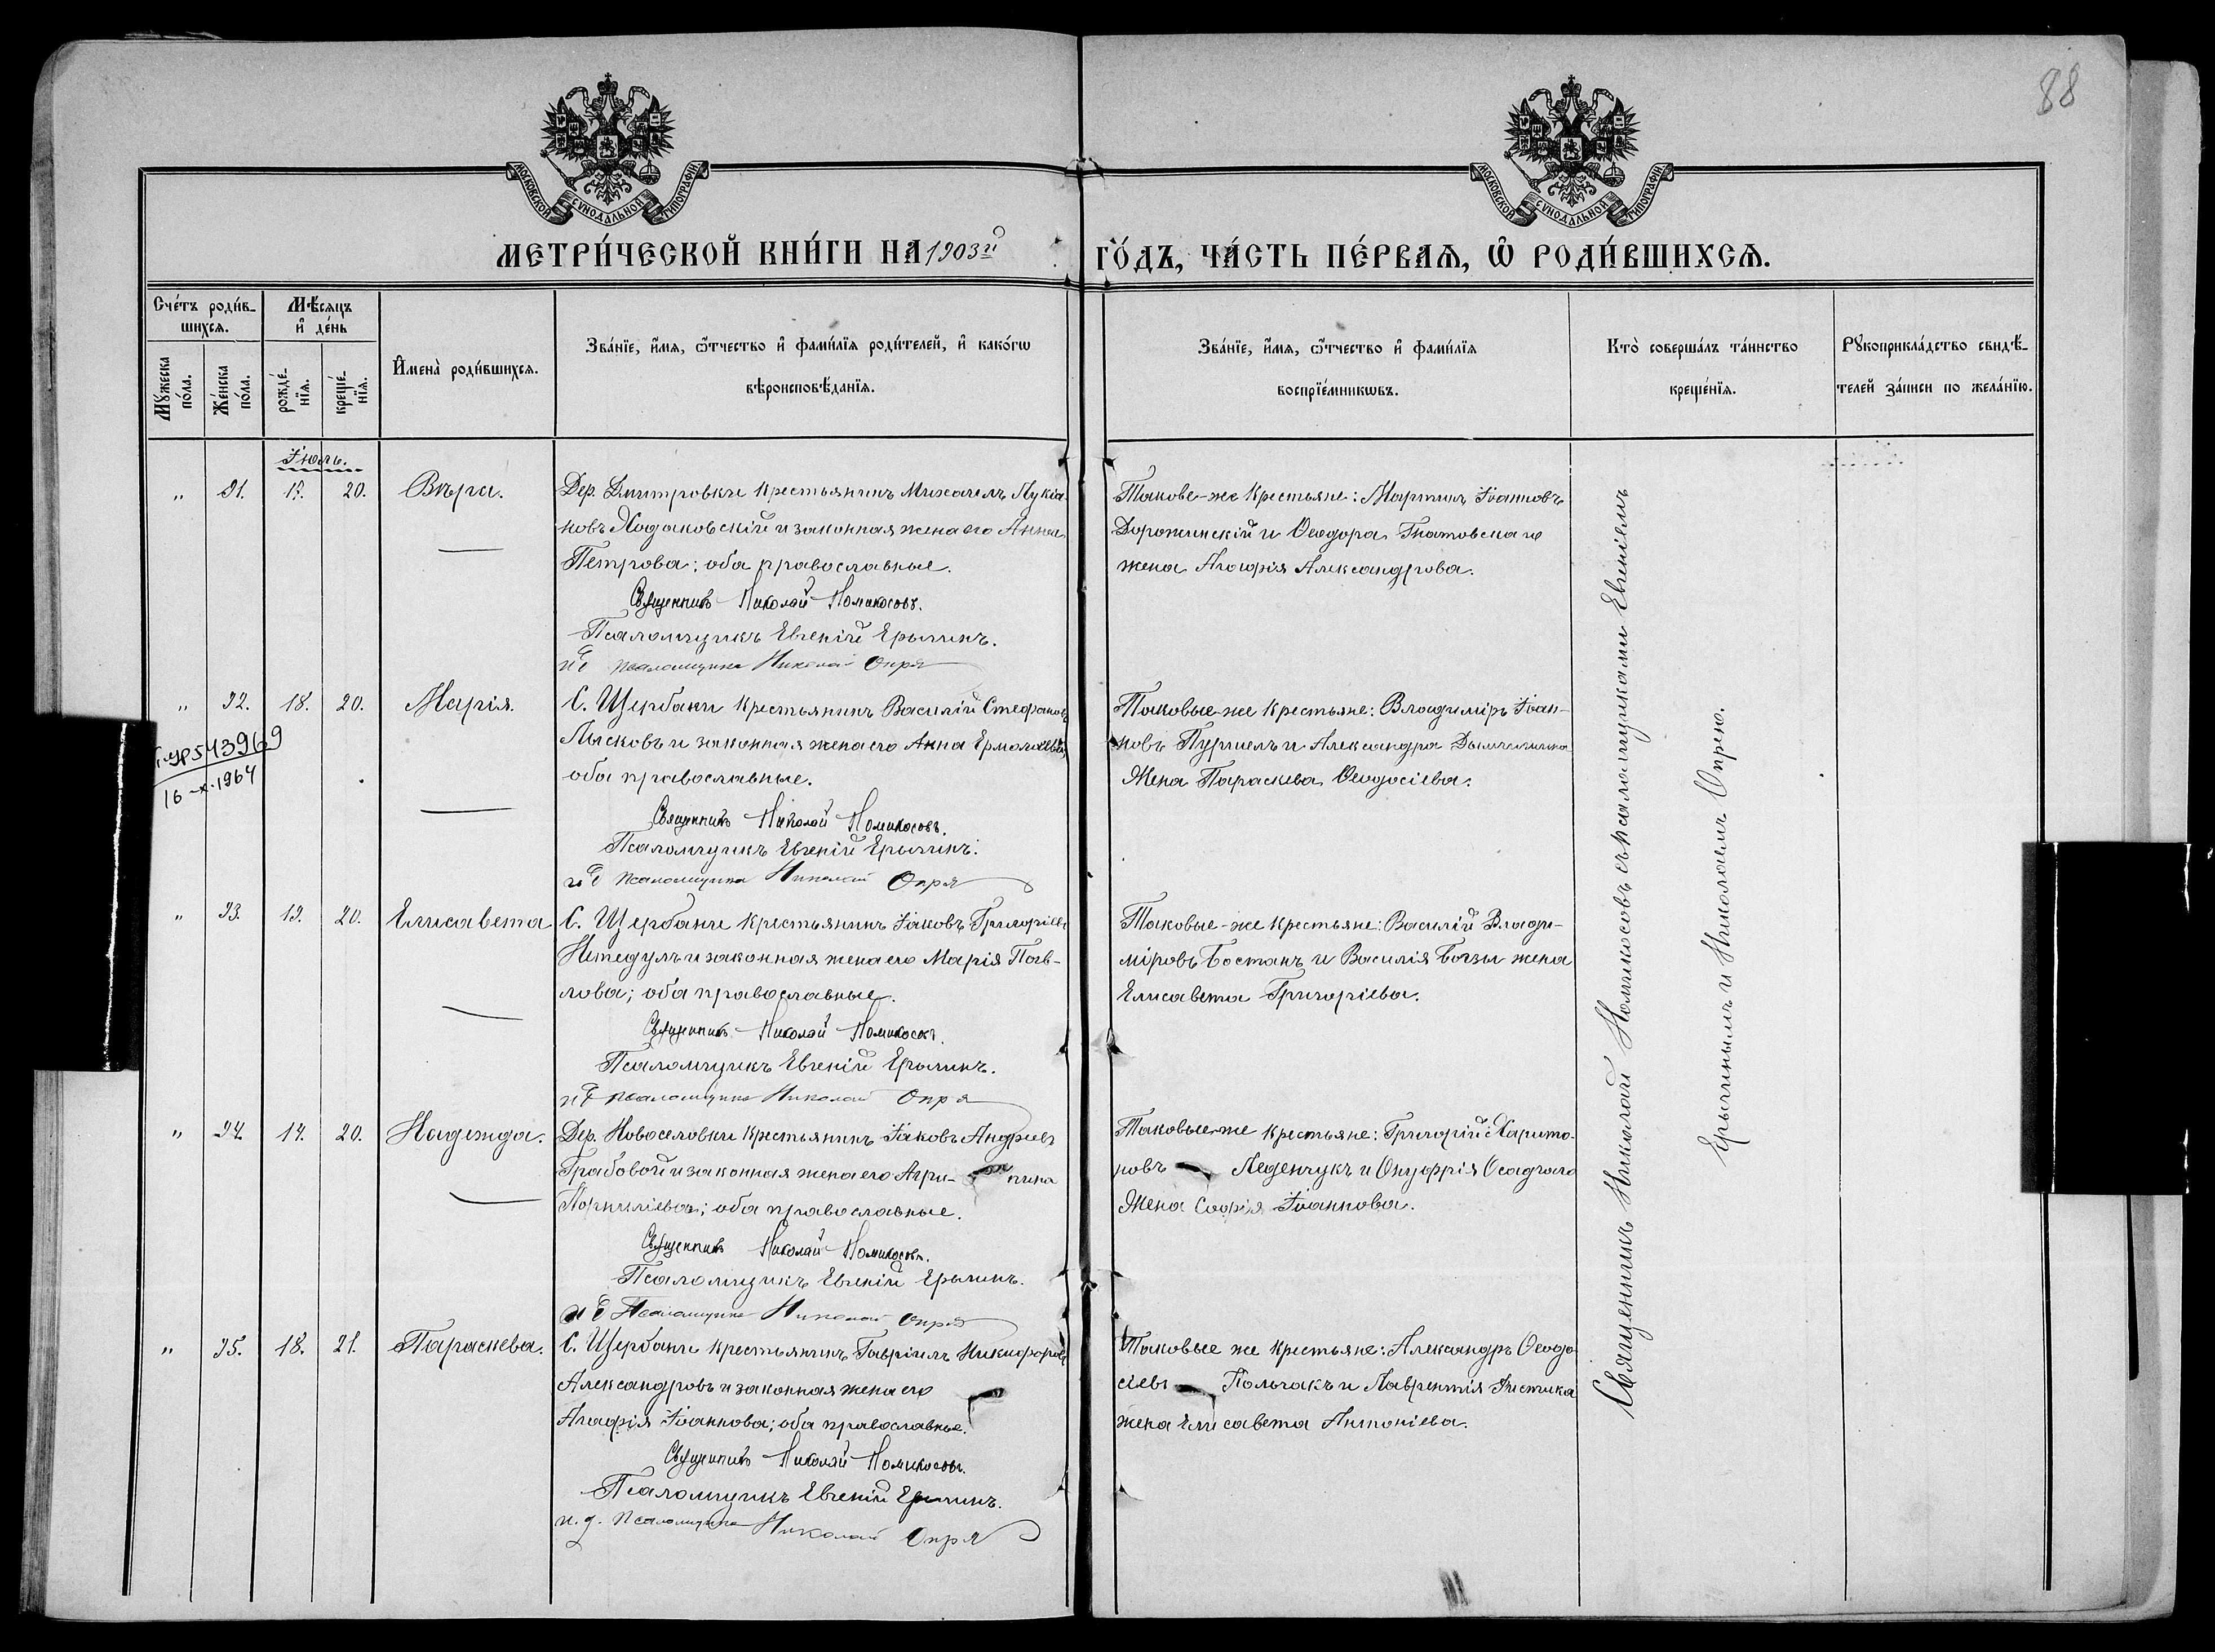 88
МОСКОВСКОЙ СѴНОДАЛЬНОЙ ТИПОГРАФІИ
МОСКОВСКОЙ СѴНОДАЛЬНОЙ ТИПОГРАФІИ
МЕТРИ́ЧЕСКОЙ КНИ́ГИ НА 1903й
ГО́ДЪ, ЧА́СТЬ ПЕ́РВАѦ, Ѡ҆ РОДИ́ВШИХСѦ.
Счéтъ роди́в-
шихсѧ.
Мѣ́сѧцъ
и҆ де́нь
Мꙋ́жеска
по́ла.
Же́нска
по́ла.
рожде́-
нїѧ.
креще́-
нїѧ.
И҆мена̀ роди́вшихсѧ.
Зва́нїе, и҆́мѧ, ѻ҆́тчество и҆ фами́лїѧ роди́телей, и҆ како́гѡ
вѣроисповѣ́данїѧ.
Зва́нїе, и҆́мѧ, ѻ҆́тчество и҆ фами́лїѧ
воспрїе́мникѡвъ.
Кто̀ соверша́лъ та́инство
креще́нїѧ.
Рꙋкоприкла́дство свидѣ́-
телей за́писи по жела́нїю.
Іюль.
" 91. 17. 20. Вѣра.
Дер. Дмитровки крестьянинъ Михаилъ Лукіа-
новъ Ходаковскій и законная жена его Анна
Петрова; оба православные.
Священникъ Николай Номикосовъ.
Псаломщикъ Евгеній Ерычинъ.
и д псаломщика Николай Опря
Таковые-же крестьяне: Мартинъ Іоанновъ
Дорожинскій и Ѳеодора
жена Агафія Александрова.
" 92. 18. 20. Марія.
С. Щербани крестьянинъ Василій Стефановъ
Лысковъ и законная жена его Анна Ермолаева,
оба православные.
Священникъ Николай Номикосовъ.
Псаломщикъ Евгеній Ерычинъ.
и д псаломщика Николай Опря
543969
16-х-1964
Таковые-же крестьяне: Владиміръ Іоан-
новъ и Александра
жена Параскева Ѳеодосіева.
" 93. 19. 20. Елисавета
С. Щербани крестьянинъ Іаковъ Григоріевъ
и законная жена его Марія Пав-
лова; оба православные.
Священникъ Николай Номикосовъ.
Псаломщикъ Евгеній Ерычинъ.
и д псаломщика Николай Опря
Таковые-же крестьяне: Василій Влади-
міровъ Бостанъ и Василія жена
Елисавета Григоріева.
" 94. 14. 20. Надежда.
Дер. Новоселовки крестьянинъ Іаковъ Андреевъ
Грабовой и законная жена его Агри- пина
Корниліева; оба православные.
Священникъ Николай Номикосовъ.
Псаломщикъ Евгеній Ерычинъ.
и д Псаломщика Николай Опря
Таковые-же крестьяне: Григорій Харито-
новъ Леденчукъ и Онуфрія Осадчаго
жена Софія Іоаннова.
" 95. 18. 21. Параскева.
С. Щербани крестьянинъ Гавріилъ Никифоровъ
Александровъ и законная жена его
Агафія Іоаннова; оба православные.
Священникъ Николай Номикосовъ.
Псаломщикъ Евгеній Ерычинъ.
и. д. псаломщика Николай Опря
Таковые же крестьяне: Александръ Ѳеодо-
сіевъ Кольчакъ и Лаврентія
жена Елисавета Антоніева.
Священникъ Николай Номикосовъ съ псаломщиками Евгеніемъ
Ерычинымъ и Николаемъ Опрею.